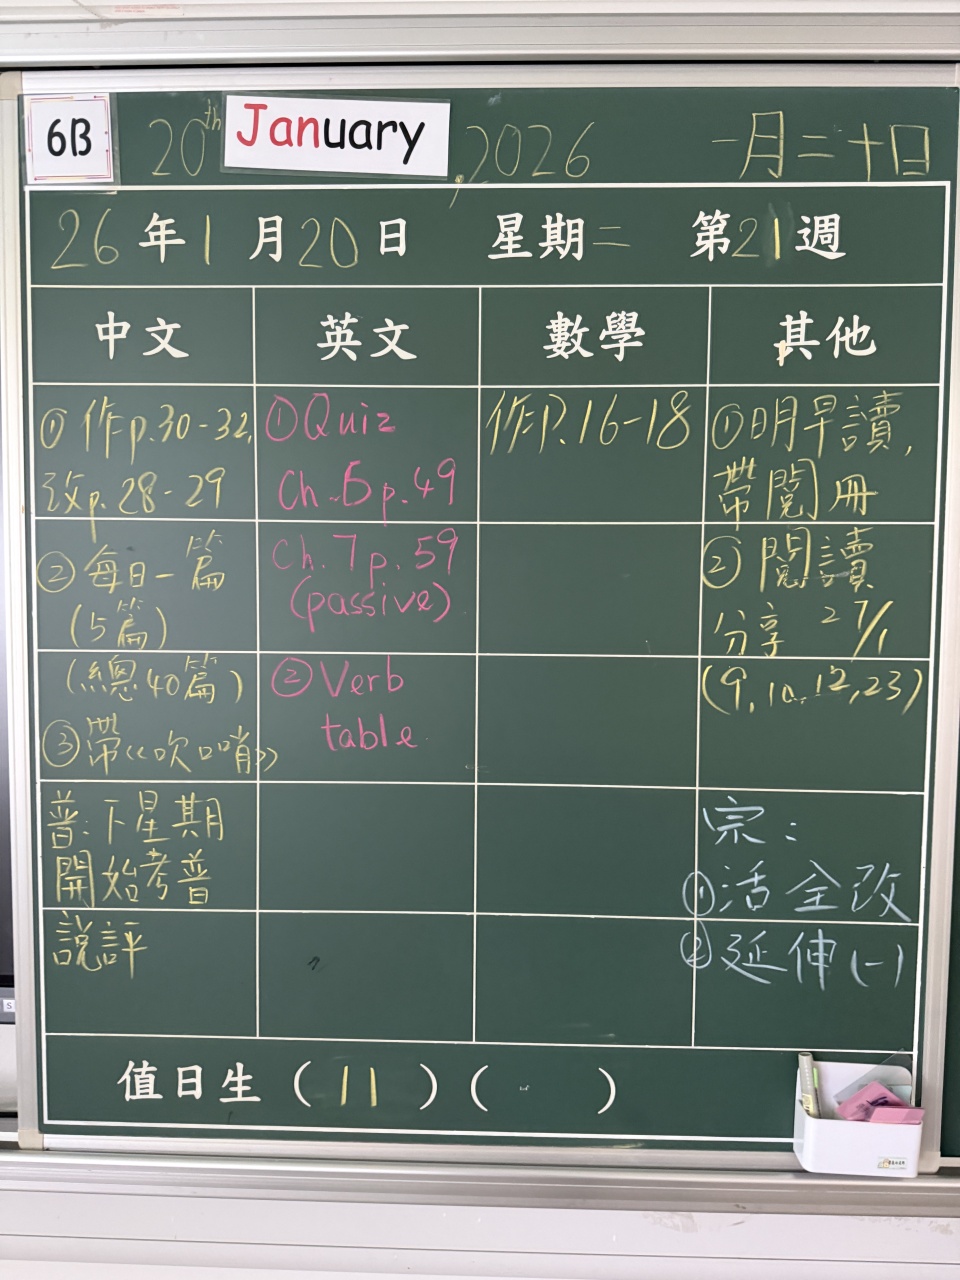 6B 20th January, 2026 一月二十日
26年1月20日 星期二 第21週
中文 英文 數學 其他
①作p.30-32,
改p.28-29
②每日一篇
(5篇)
(總40篇)
③帶《吹口哨》
普:下星期
開始考普
說評
①Quiz
Ch.5 p.49
Ch.7 p.59
(passive)
②Verb
table
作P.16-18
①明早讀,
帶閱冊
②閱讀
分享 27/1
(9,10,12,23)
宗:
①活全改
②延伸(一)
值日生(11)( )